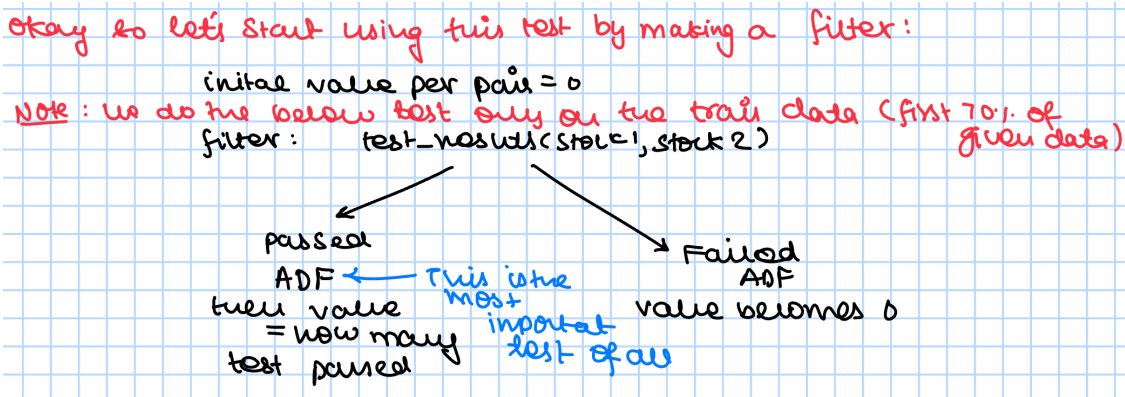 okay so let's start using this test by making a filter:
inital value per pair = 0
Note: we do the below test only on the train data (first 70% of given data)
filter: test_results(stock1, stock2)
passed
ADF
then value
= how many
test passed
This is the
most
inportat
test of all
Failed
ADF
value becomes 0